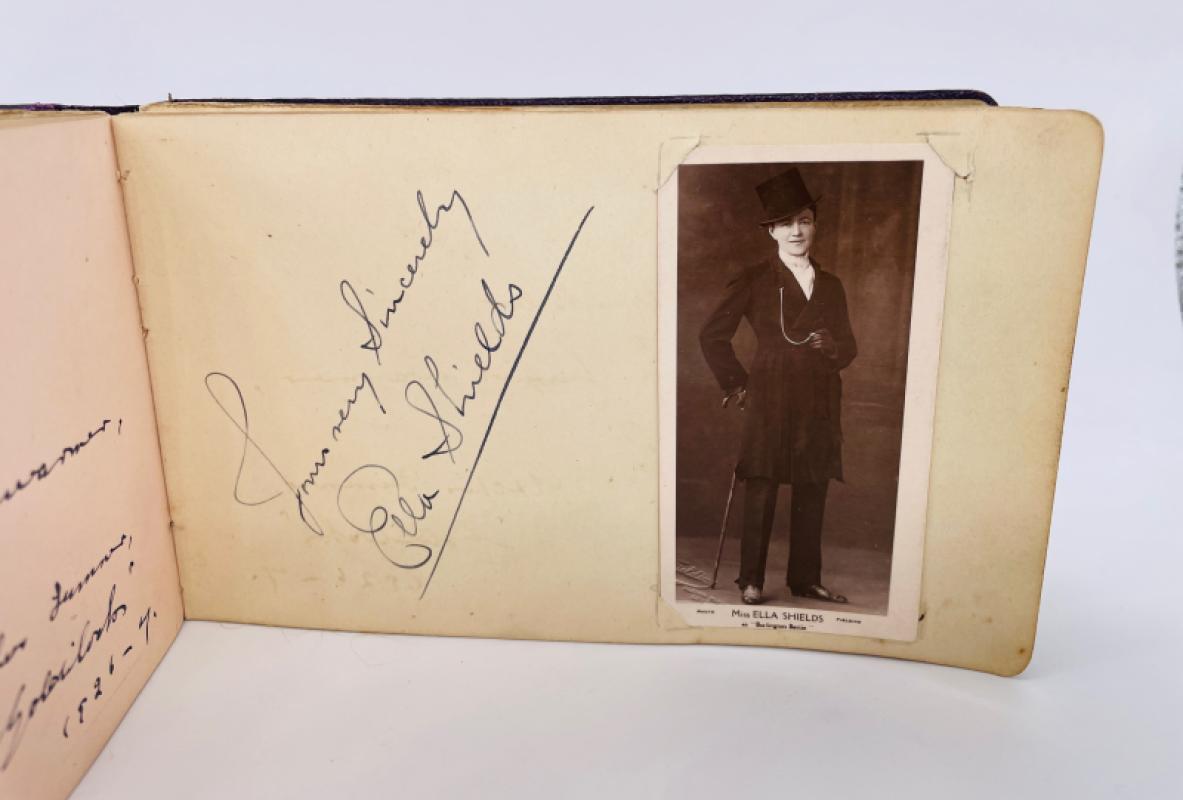 Goldilocks
1926-7.
Yours very Sincerely
Ella Shields
PHOTO
Miss ELLA SHIELDS
FIELDING
as "Burlington Bertie"